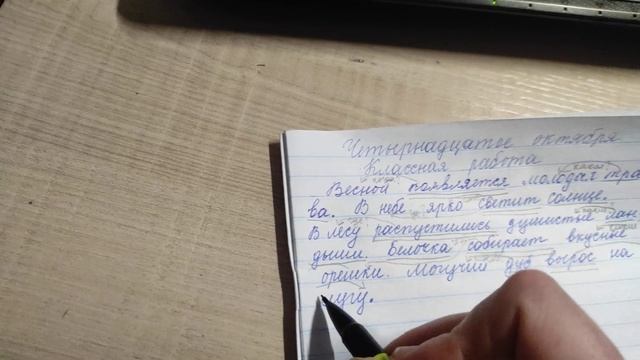 Четырнадцатое октября
Классная работа
Весной появляется молодая тра
ва. В небе ярко светит солнце.
В лесу распустились душистые лан
дыши. Белочка собирает вкусные
орешки. Могучий дуб вырос на
лугу.